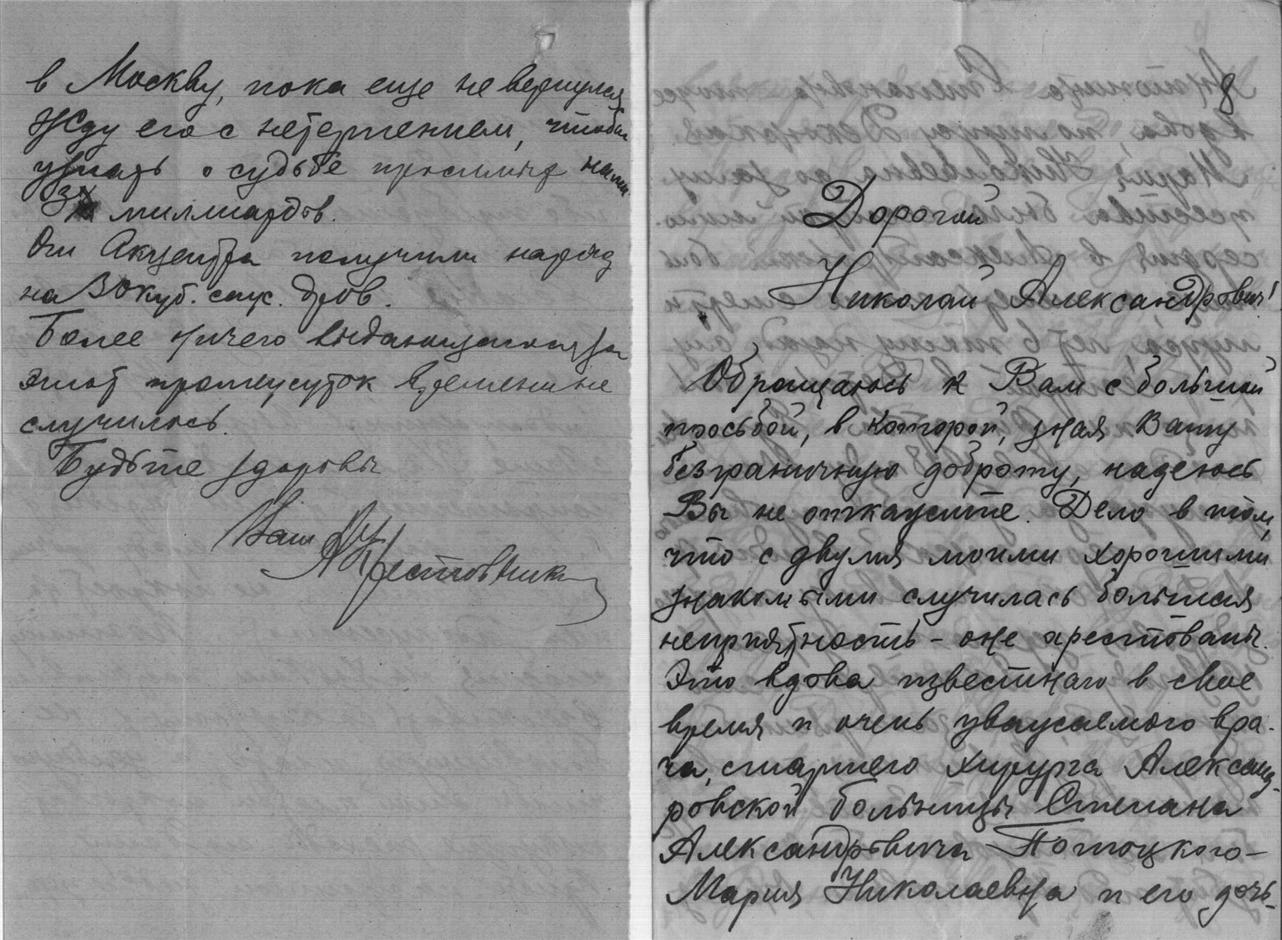 в Москву, пока еще не вернулся
Жду его с нетерпением, чтобы
узнать о судьбе просимых нами
3х миллиардов.
От Акцентра получили наряд
на 30 куб. саж. дров.
Более ничего выдающегося за
этот промежуток времени не
случилось.
Будьте здоровы
Ваш
8
Дорогой
Николай Александрович!
Обращаюсь к Вам с большой
просьбой, в которой, зная Вашу
безграничную доброту, надеюсь
Вы не откажите. Дело в том,
что с двумя моими хорошими
знакомыми случилась большая
неприятность - оне арестованы.
Это вдова известнаго в свое
время и очень уважаемого вра-
ча, старшего хирурга Александ-
ровской больницы Степана
Александровича Потоцкого -
Мария Николаевна и его дочь-